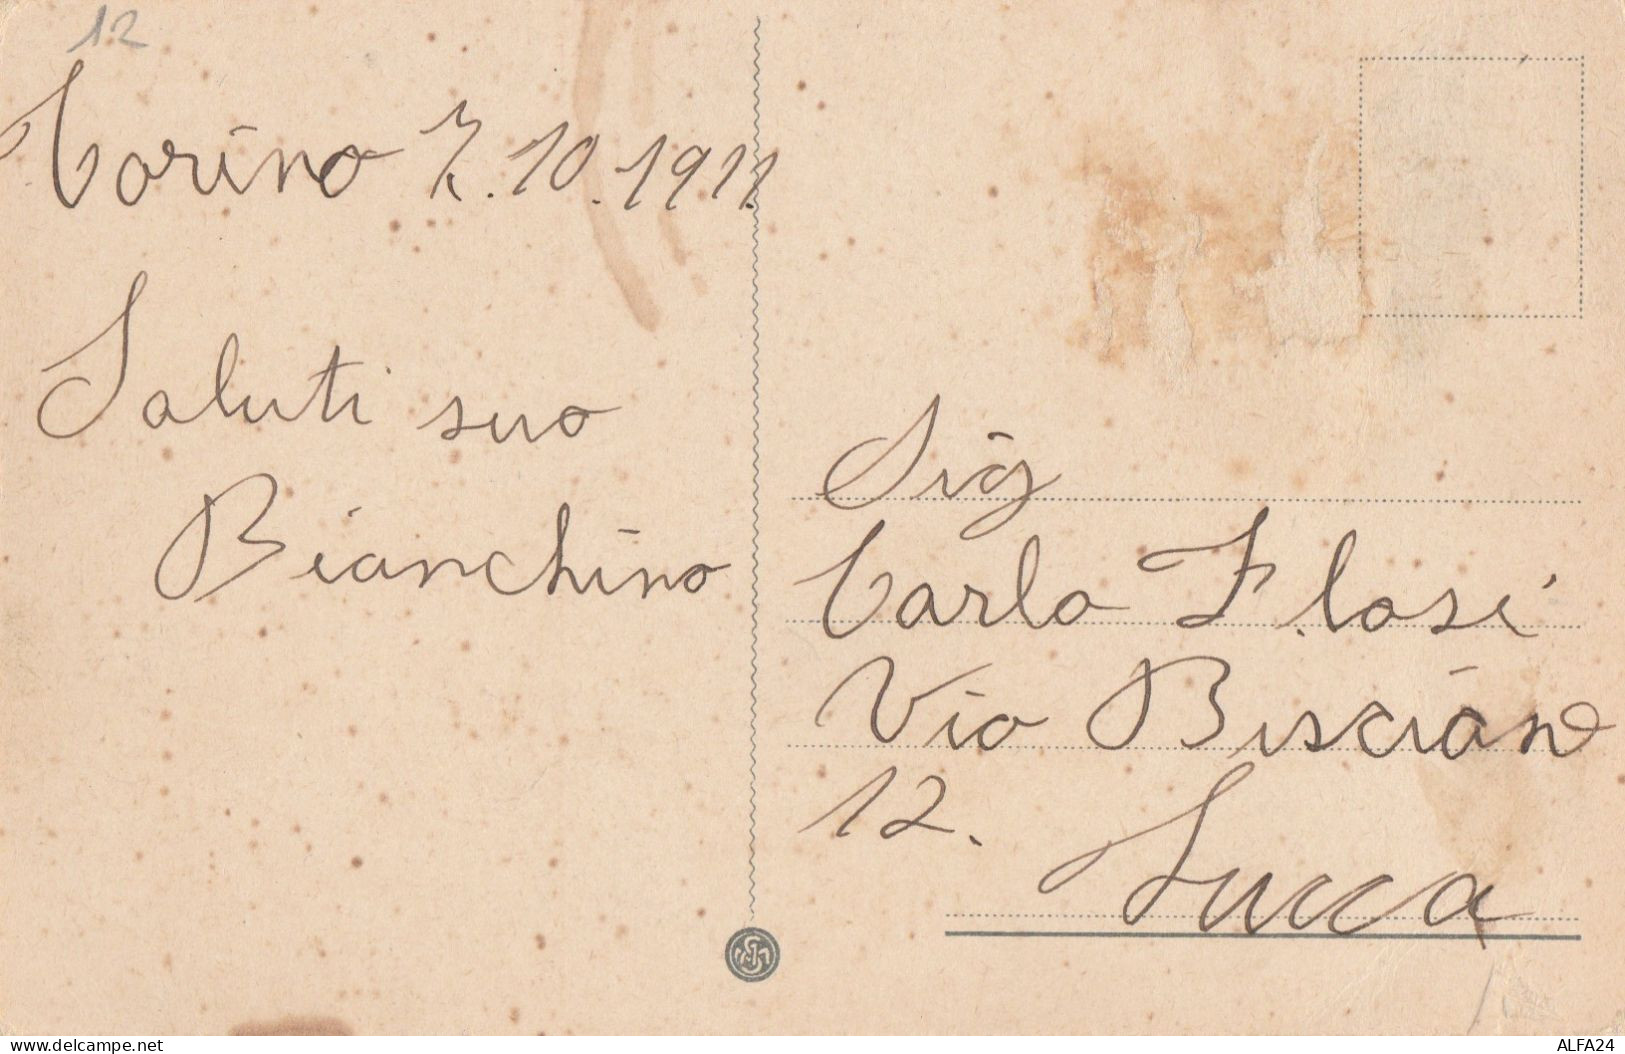 12
Torino 7.10.1911
Saluti suo
Bianchino
Sig
Carlo Flosi
Via Biscione
12.
Lucca
delcampe.net
ALFA24